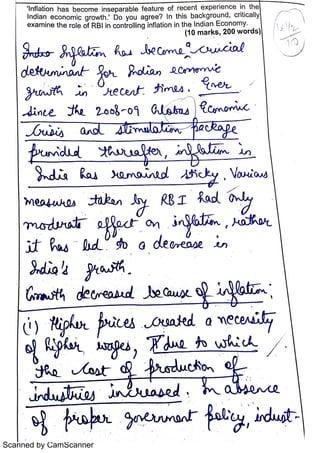 'Inflation has become inseparable feature of recent experience in the
Indian economic growth.' Do you agree? In this background, critically
examine the role of RBI in controlling inflation in the Indian Economy.
(10 marks, 200 words)
Inflation has become a crucial
determinant for Indian economic
growth in recent times. Ever
since the 2008-09 Global Economic
Crisis and stimulation package
provided thereafter, inflation in
India has remained sticky. Various
measures taken by RBI had only
moderate effect on inflation, rather
it has led to a decrease in
India's growth.
Growth decreased because of inflation;
(i) Higher prices created a necessity
of higher wages, due to which
the cost of production of
industries increased. In absence
of proper government policy, indust-
Scanned by CamScanner